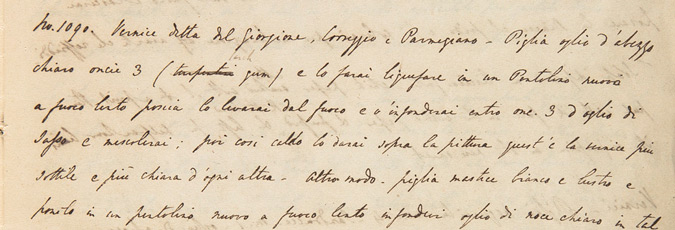 No. 1090. Vernice detta del Giorgione, Correggio e Parmegiano - Piglia oglio d'abezzo
chiaro oncie 3 (turpentin gum) e lo farai liquefare in un Pentolino nuovo
a fuoco lento poscia lo levarai dal fuoco e v'infonderai entro onc. 3 d'oglio di
Sasso e mescolerai; poi così caldo lo darai sopra la pittura quest'è la vernice più
sottile e più chiara d'ogni altra - Altro modo - piglia mastice bianco e lustro e
ponelo in un pentolino nuovo a fuoco lento infondevi oglio di noce chiaro in tal